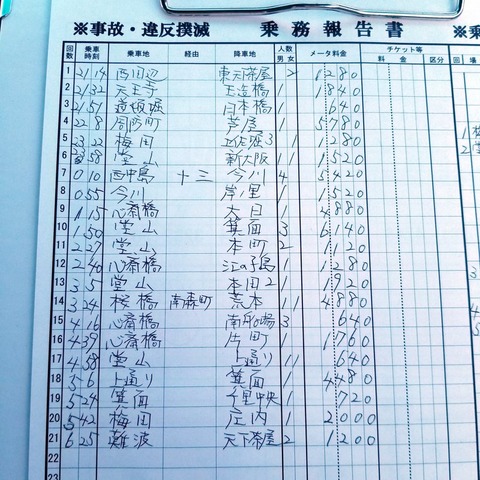 ※事故・違反撲滅 乗務報告書 ※乗
回数 乗車時刻 乗車地 経由 降車地 人数 男 女 メータ料金 チケット等 料金 区分 回 場
1 21 14 西田辺 東天下茶屋 2 1280
2 21 32 天王寺 玉造橋 1 1840
3 21 51 道頓堀 日本橋 1 640
4 22 8 周防町 芦屋 1 5780
5 23 22 梅田 土佐堀3 1 1 1280
6 23 58 堂山 新大阪 1 1 1520
7 0 10 西中島 十三 今川 4 5420
8 0 55 今川 岸ノ里 1 1520
9 1 15 心斎橋 大日 1 4880
10 1 50 堂山 箕面 3 6140
11 2 27 堂山 本町 2 1120
12 2 40 心斎橋 江の子島 1 1280
13 3 5 堂山 本田2 1 1920
14 3 24 桜橋 南森町 荒本 1 1 4880
15 4 16 心斎橋 南船場 3 640
16 4 39 心斎橋 片町 1 1760
17 4 58 堂山 上通り 1 1 640
18 5 6 上通り 箕面 1 4480
19 5 24 箕面 千里中央 1 720
20 5 42 梅田 庄内 1 2000
21 6 25 難波 天下茶屋 2 1200
22
23